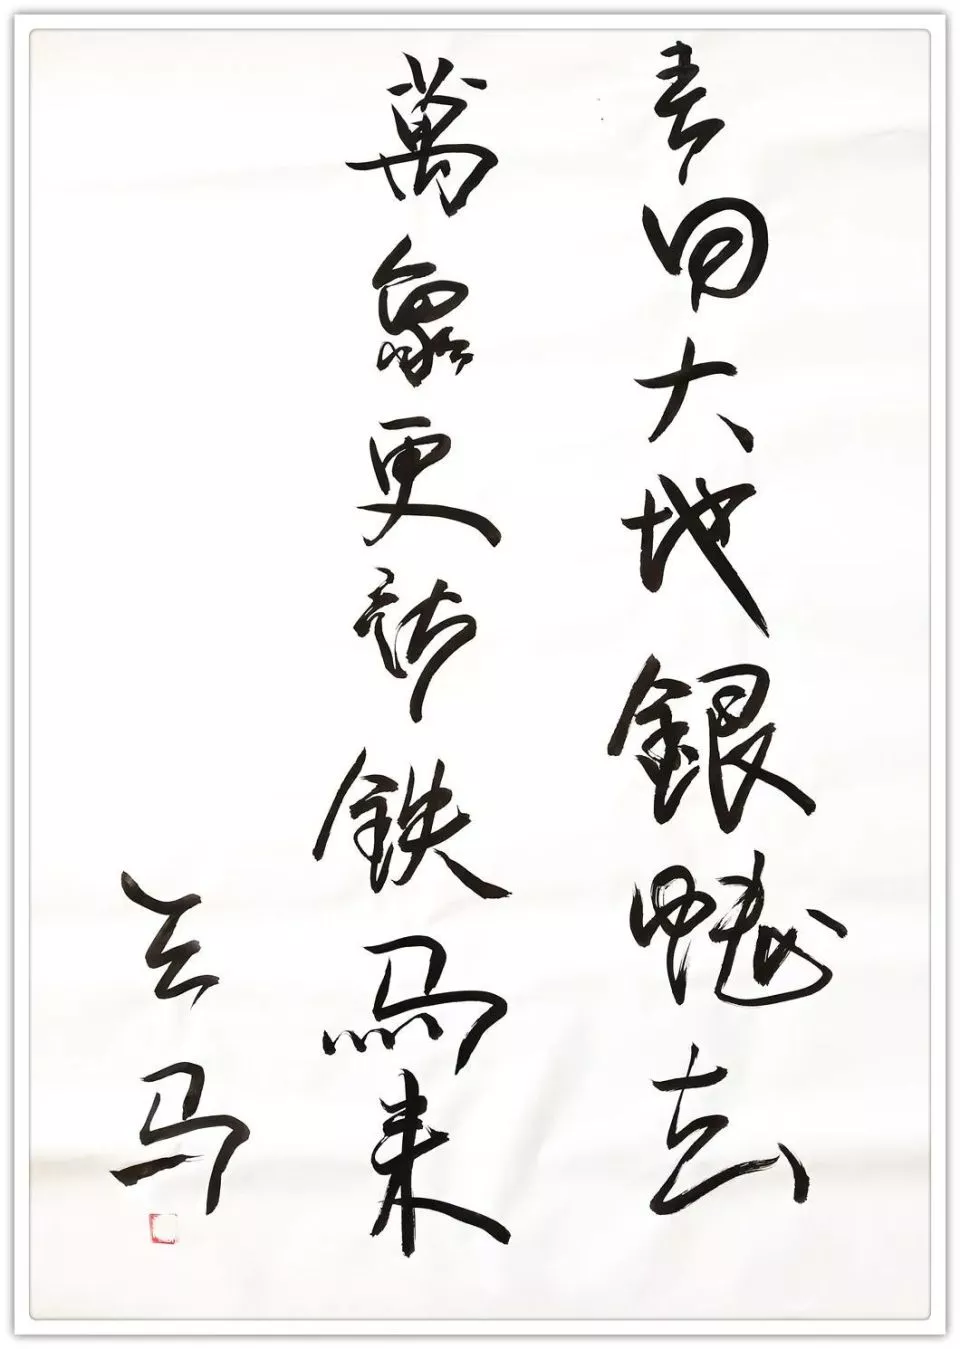 春回大地銀蛇去
萬象更新鉄馬来
马